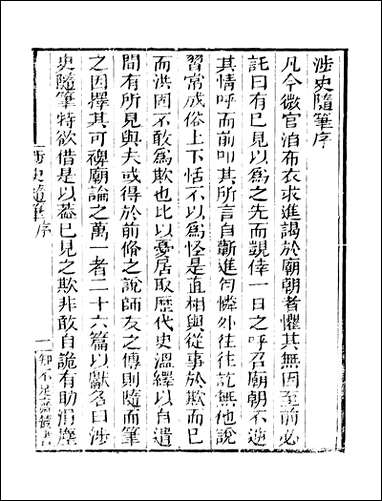 涉史隨筆序
凡今微官洎布衣求進謁於廟朝者懼其無因至前必
託曰有已見以爲之先而覬倖一日之呼召廟朝不逆
其情呼而前叩其所言自斷進匄憐外往往訖無他說
習常成俗上下恬不以爲怪是直相與從事於欺而已
而洪固不敢爲欺也比以憂居取歷代史溫繹以自遣
間有所見與夫或得於前脩之說師友之傳則隨而筆
之因擇其可裨廟論之萬一者二十六篇以獻名曰涉
史隨筆特欲借是以葢已見之欺非敢自詭有助涓塵
涉史隨筆序
一 知不足齋叢書